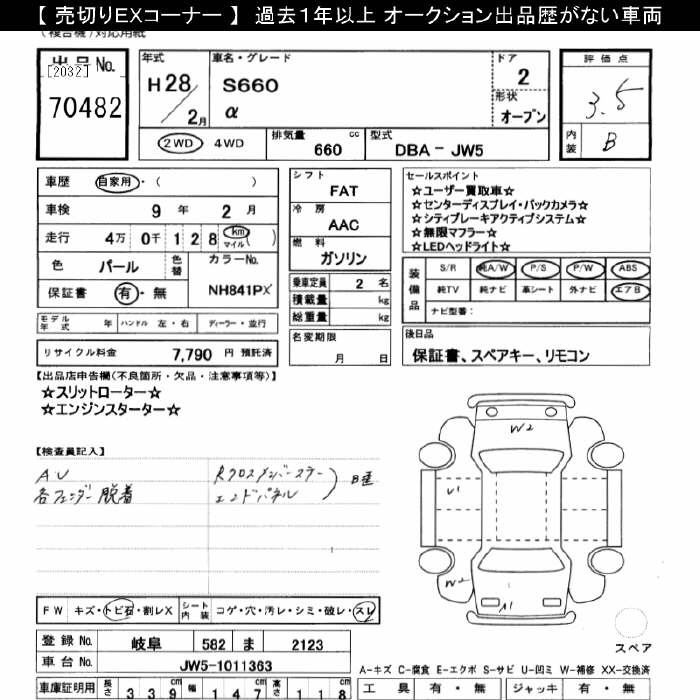 【 売切りEXコーナー 】 過去1年以上 オークション出品歴がない車両
(複合機)対応用紙
出品No.
[2032]
70482
年式
H28 / 2月
車名・グレード
S660
α
ドア
2
形状
オープン
2WD 4WD
排気量 cc
660
型式
DBA - JW5
評価点
3.5
内装
B
車歴 自家用・( )
車検 9 年 2 月
走行 4万 0千 1 2 8 km マイル ( )
色 パール 色替 カラーNo. NH841PX
保証書 有・無
モデル年式 年 ハンドル 左・右 ディーラー・並行
リサイクル料金 7,790 円 預託済
シフト
FAT
冷房
AAC
燃料
ガソリン
乗車定員 2 名
積載量 kg
総重量 kg
名変期限
月 日
セールスポイント
☆ユーザー買取車☆
☆センターディスプレイ・バックカメラ☆
☆シティブレーキアクティブシステム☆
☆無限マフラー☆
☆LEDヘッドライト☆
装備品
S/R 純A/W P/S P/W ABS
純TV 純ナビ 革シート 外ナビ エアB
ナビ型番:
後日品
保証書、スペアキー、リモコン
【出品店申告欄(不良箇所・欠品・注意事項等)】
☆スリットローター☆
☆エンジンスターター☆
【検査員記入】
A・U
各フェンダー脱着
Rクロスメンバーステー
エンドパネル
W2
U1
W2
A1
スペア
FW キズ・トビ石・割レX シート内装 コゲ・穴・汚レ・シミ・破レ・スレ
登録No. 岐阜 582 ま 2123
車台No. JW5-1011363
車庫証明用 長さ 339cm 幅 147cm 高さ 118cm
A-キズ C-腐食 E-エクボ S-サビ U-凹ミ W-補修 XX-交換済
工具 有・無 ジャッキ 有・無